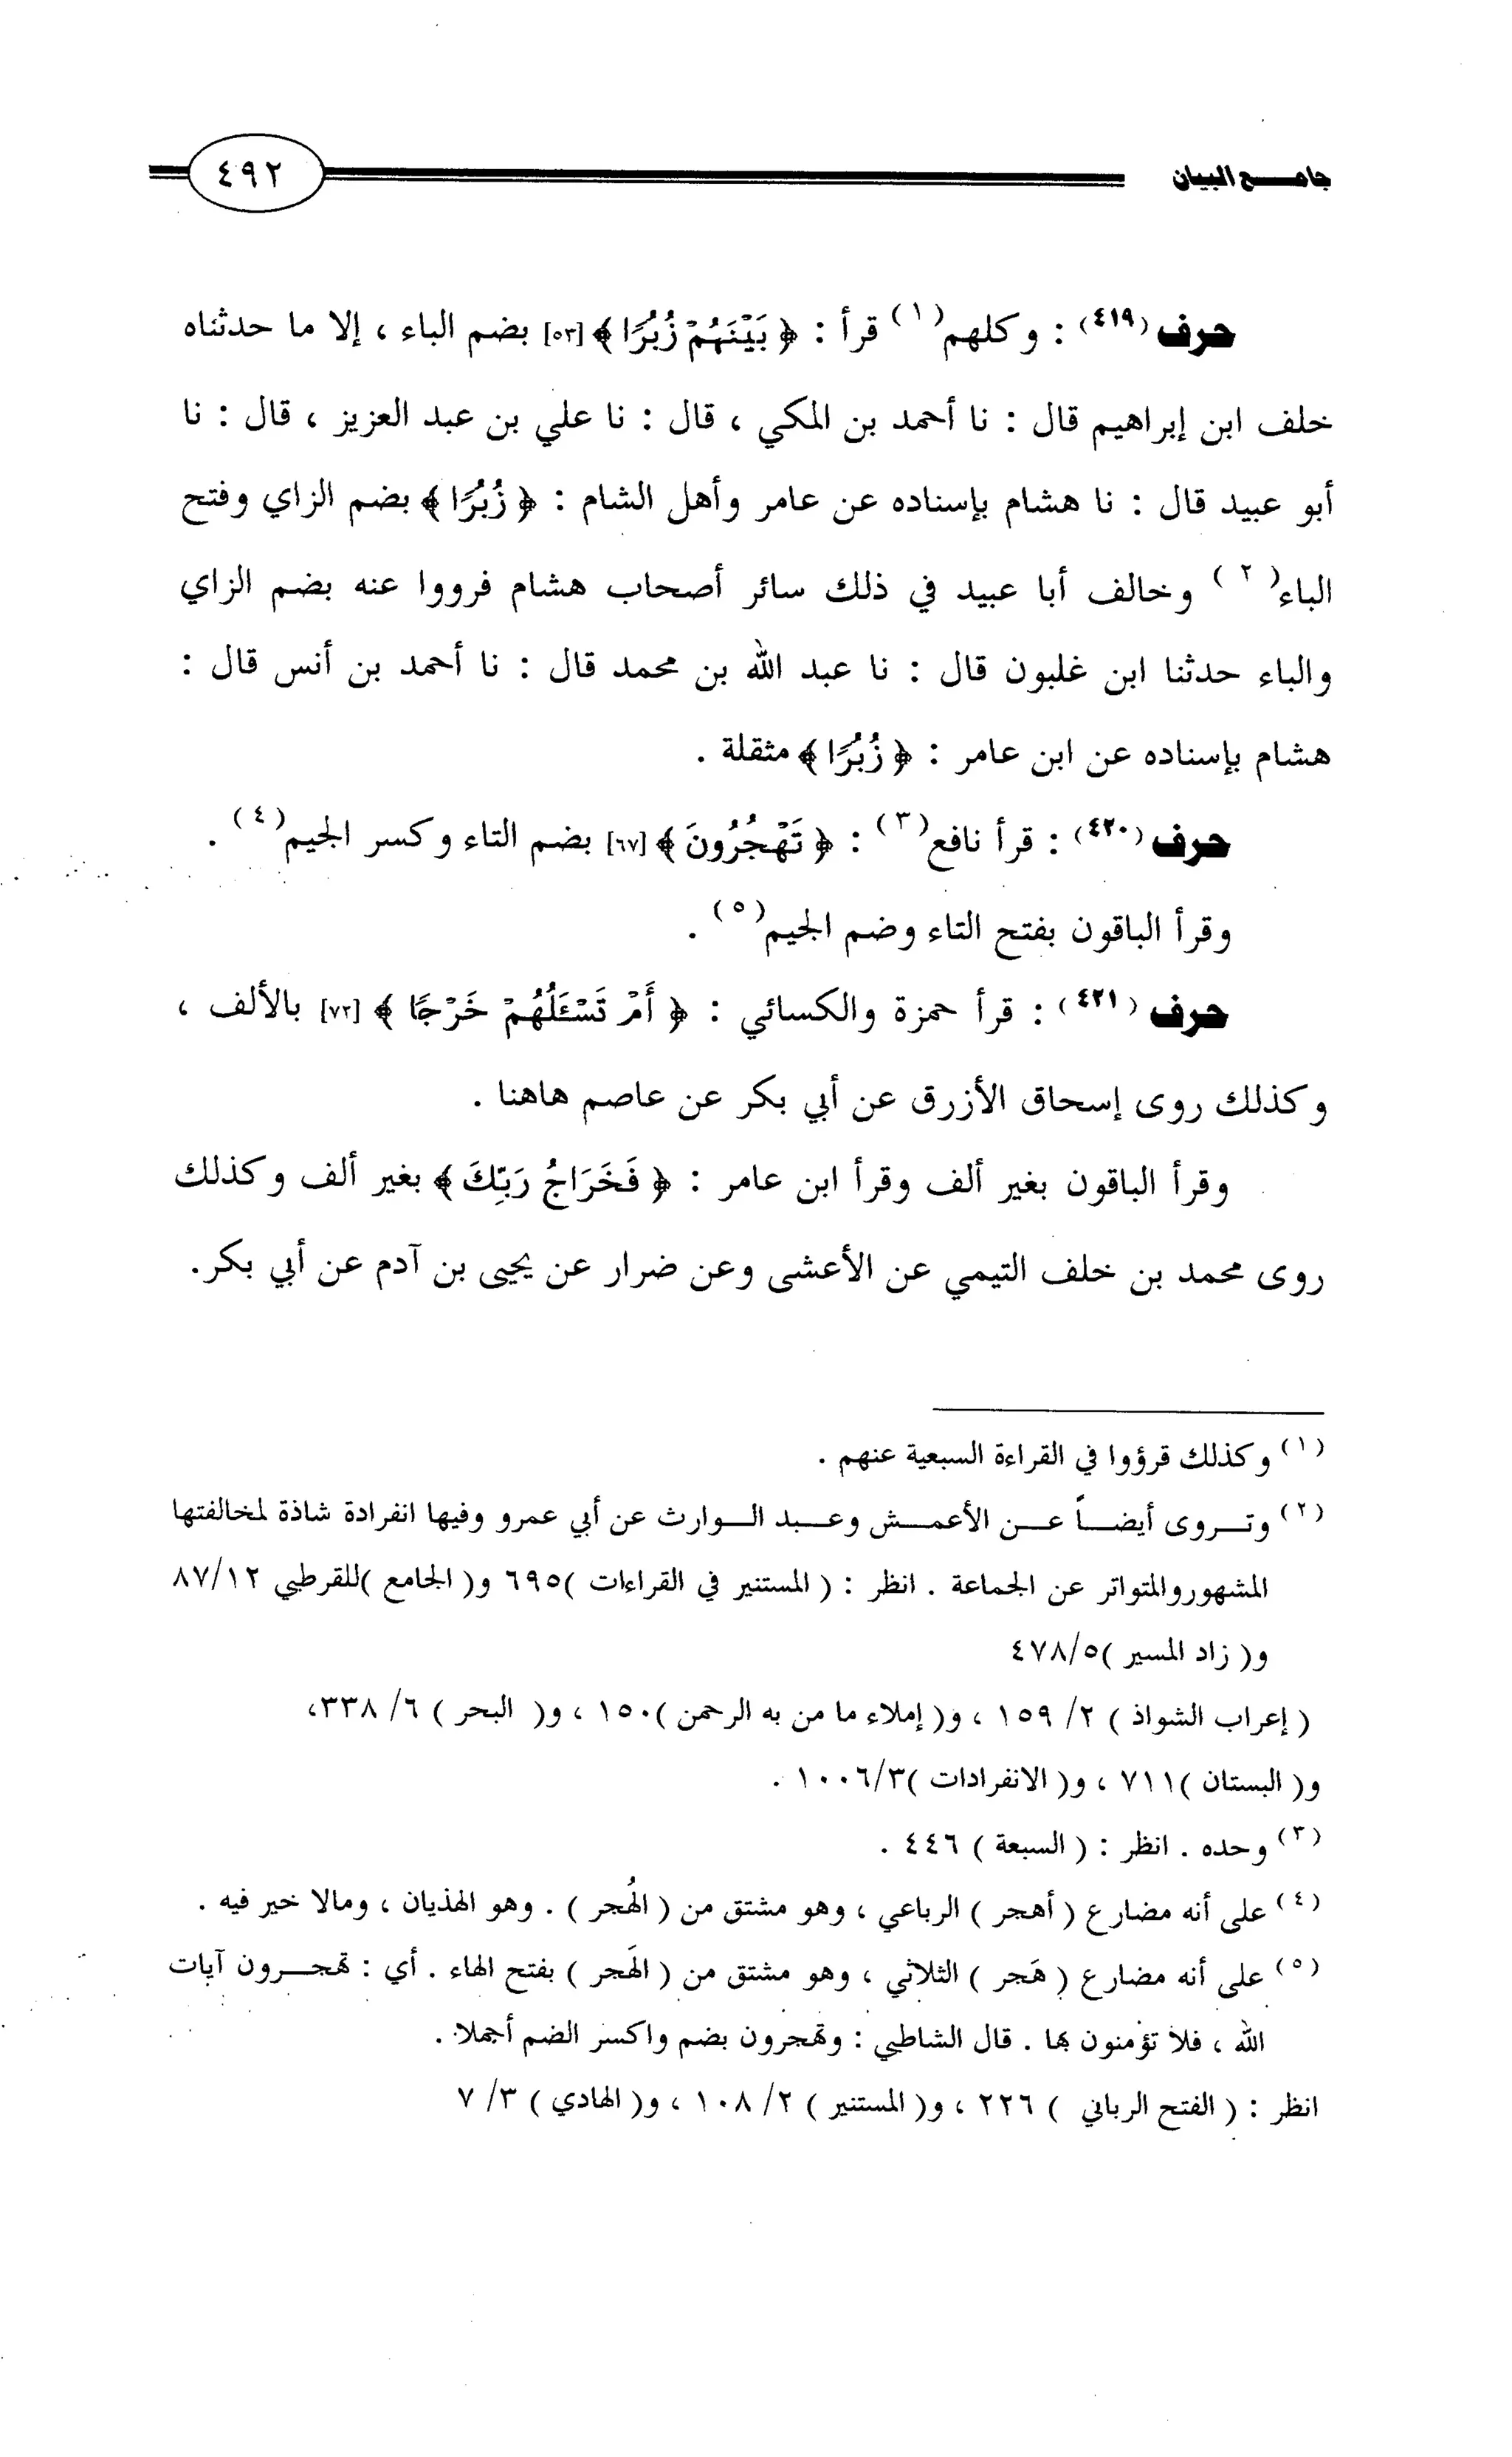 جامع البيان
٤٩٢
حرف (٤١٩) : وكلهم(١) قرأ : ﴿ بَيْنَهُمْ زُبُرًا ﴾ [٥٣] بضم الباء ، إلا ما حدثناه
خلف ابن إبراهيم قال : نا أحمد بن المكي ، قال : نا علي بن عبد العزيز ، قال : نا
أبو عبيد قال : نا هشام بإسناده عن عامر وأهل الشام : ﴿ زُبُرًا ﴾ بضم الزاي وفتح
الباء(٢) وخالف أبا عبيد في ذلك سائر أصحاب هشام فرووا عنه بضم الزاي
والباء حدثنا ابن غلبون قال : نا عبد الله بن محمد قال : نا أحمد بن أنس قال :
هشام بإسناده عن ابن عامر : ﴿ زُبُرًا ﴾ مثقلة .
حرف (٤٢٠) : قرأ نافع(٣) : ﴿ تَهْجُرُونَ ﴾ [٦٧] بضم التاء وكسر الجيم(٤) .
وقرأ الباقون بفتح التاء وضم الجيم(٥) .
حرف (٤٢١) : قرأ حمزة والكسائي : ﴿ أَمْ تَسْـَٔلُهُمْ خَرْجًا ﴾ [٧٢] بالألف ،
وكذلك روى إسحاق الأزرق عن أبي بكر عن عاصم هاهنا .
وقرأ الباقون بغير ألف وقرأ ابن عامر : ﴿ فَخَرَاجُ رَبِّكَ ﴾ بغير ألف وكذلك
روى محمد بن خلف التيمي عن الأعشى وعن ضرار عن يحيى بن آدم عن أبي بكر.
(١) وكذلك قرؤوا في القراءة السبعية عنهم .
(٢) وتروى أيضاً عن الأعمش وعبد الوارث عن أبي عمرو وفيها انفرادة شاذة لمخالفتها
المشهوروالمتواتر عن الجماعة . انظر : ( المستنير في القراءات )٦٩٥ و( الجامع )للقرطبي ٨٧/١٢
و( زاد المسير )٤٧٨/٥
( إعراب الشواذ ) ٢/ ١٥٩ ، و( إملاء ما من به الرحمن )١٥٠ ، و( البحر ) ٦/ ٣٣٨،
و( البستان )٧١١ ، و( الانفرادات )١٠٠٦/٣ .
(٣) وحده . انظر : ( السبعة ) ٤٤٦ .
(٤) على أنه مضارع ( أهجر ) الرباعي ، وهو مشتق من ( الهُجر ) . وهو الهذيان ، ومالا خير فيه .
(٥) على أنه مضارع ( هَجر ) الثلاثي ، وهو مشتق من ( الهَجر ) بفتح الهاء . أي : تهجرون آيات
الله ، فلا تؤمنون بها . قال الشاطبي : وتهجرون بضم واكسر الضم أجملا .
انظر : ( الفتح الرباني ) ٢٢٦ ، و( المستنير ) ٢/ ١٠٨ ، و( الهادي ) ٣/ ٧